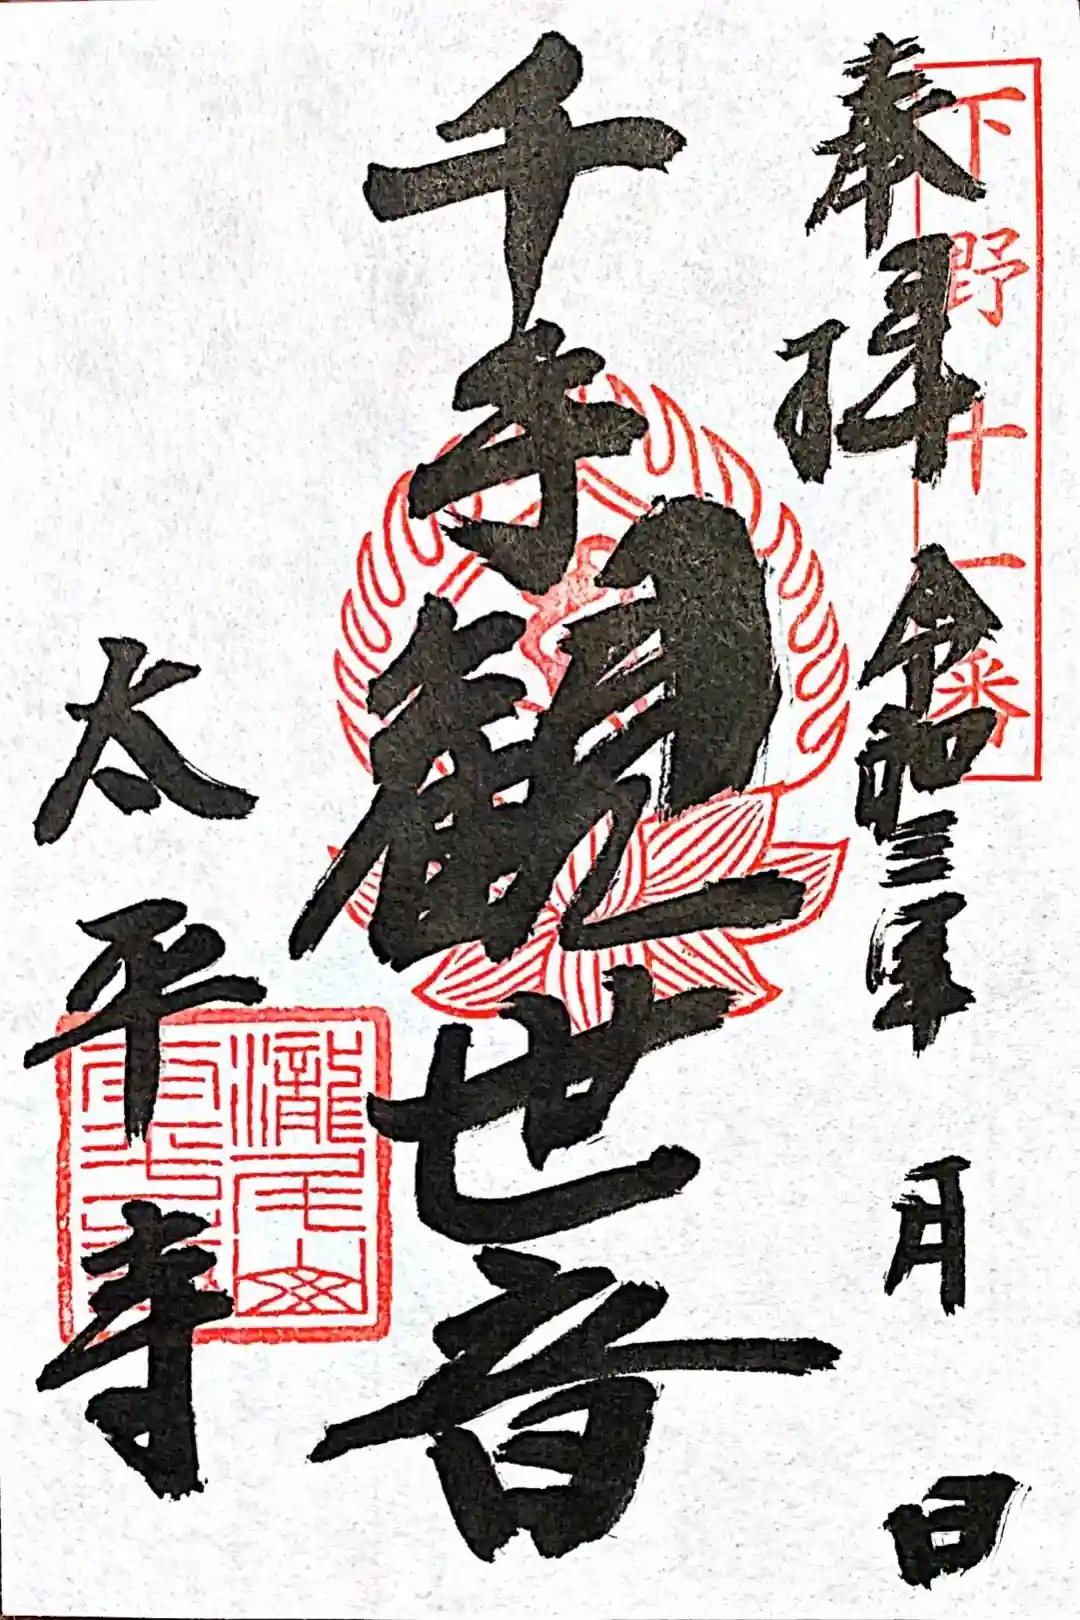 下野十一番
奉拝 令和三年 月 日
千手観世音
太平寺